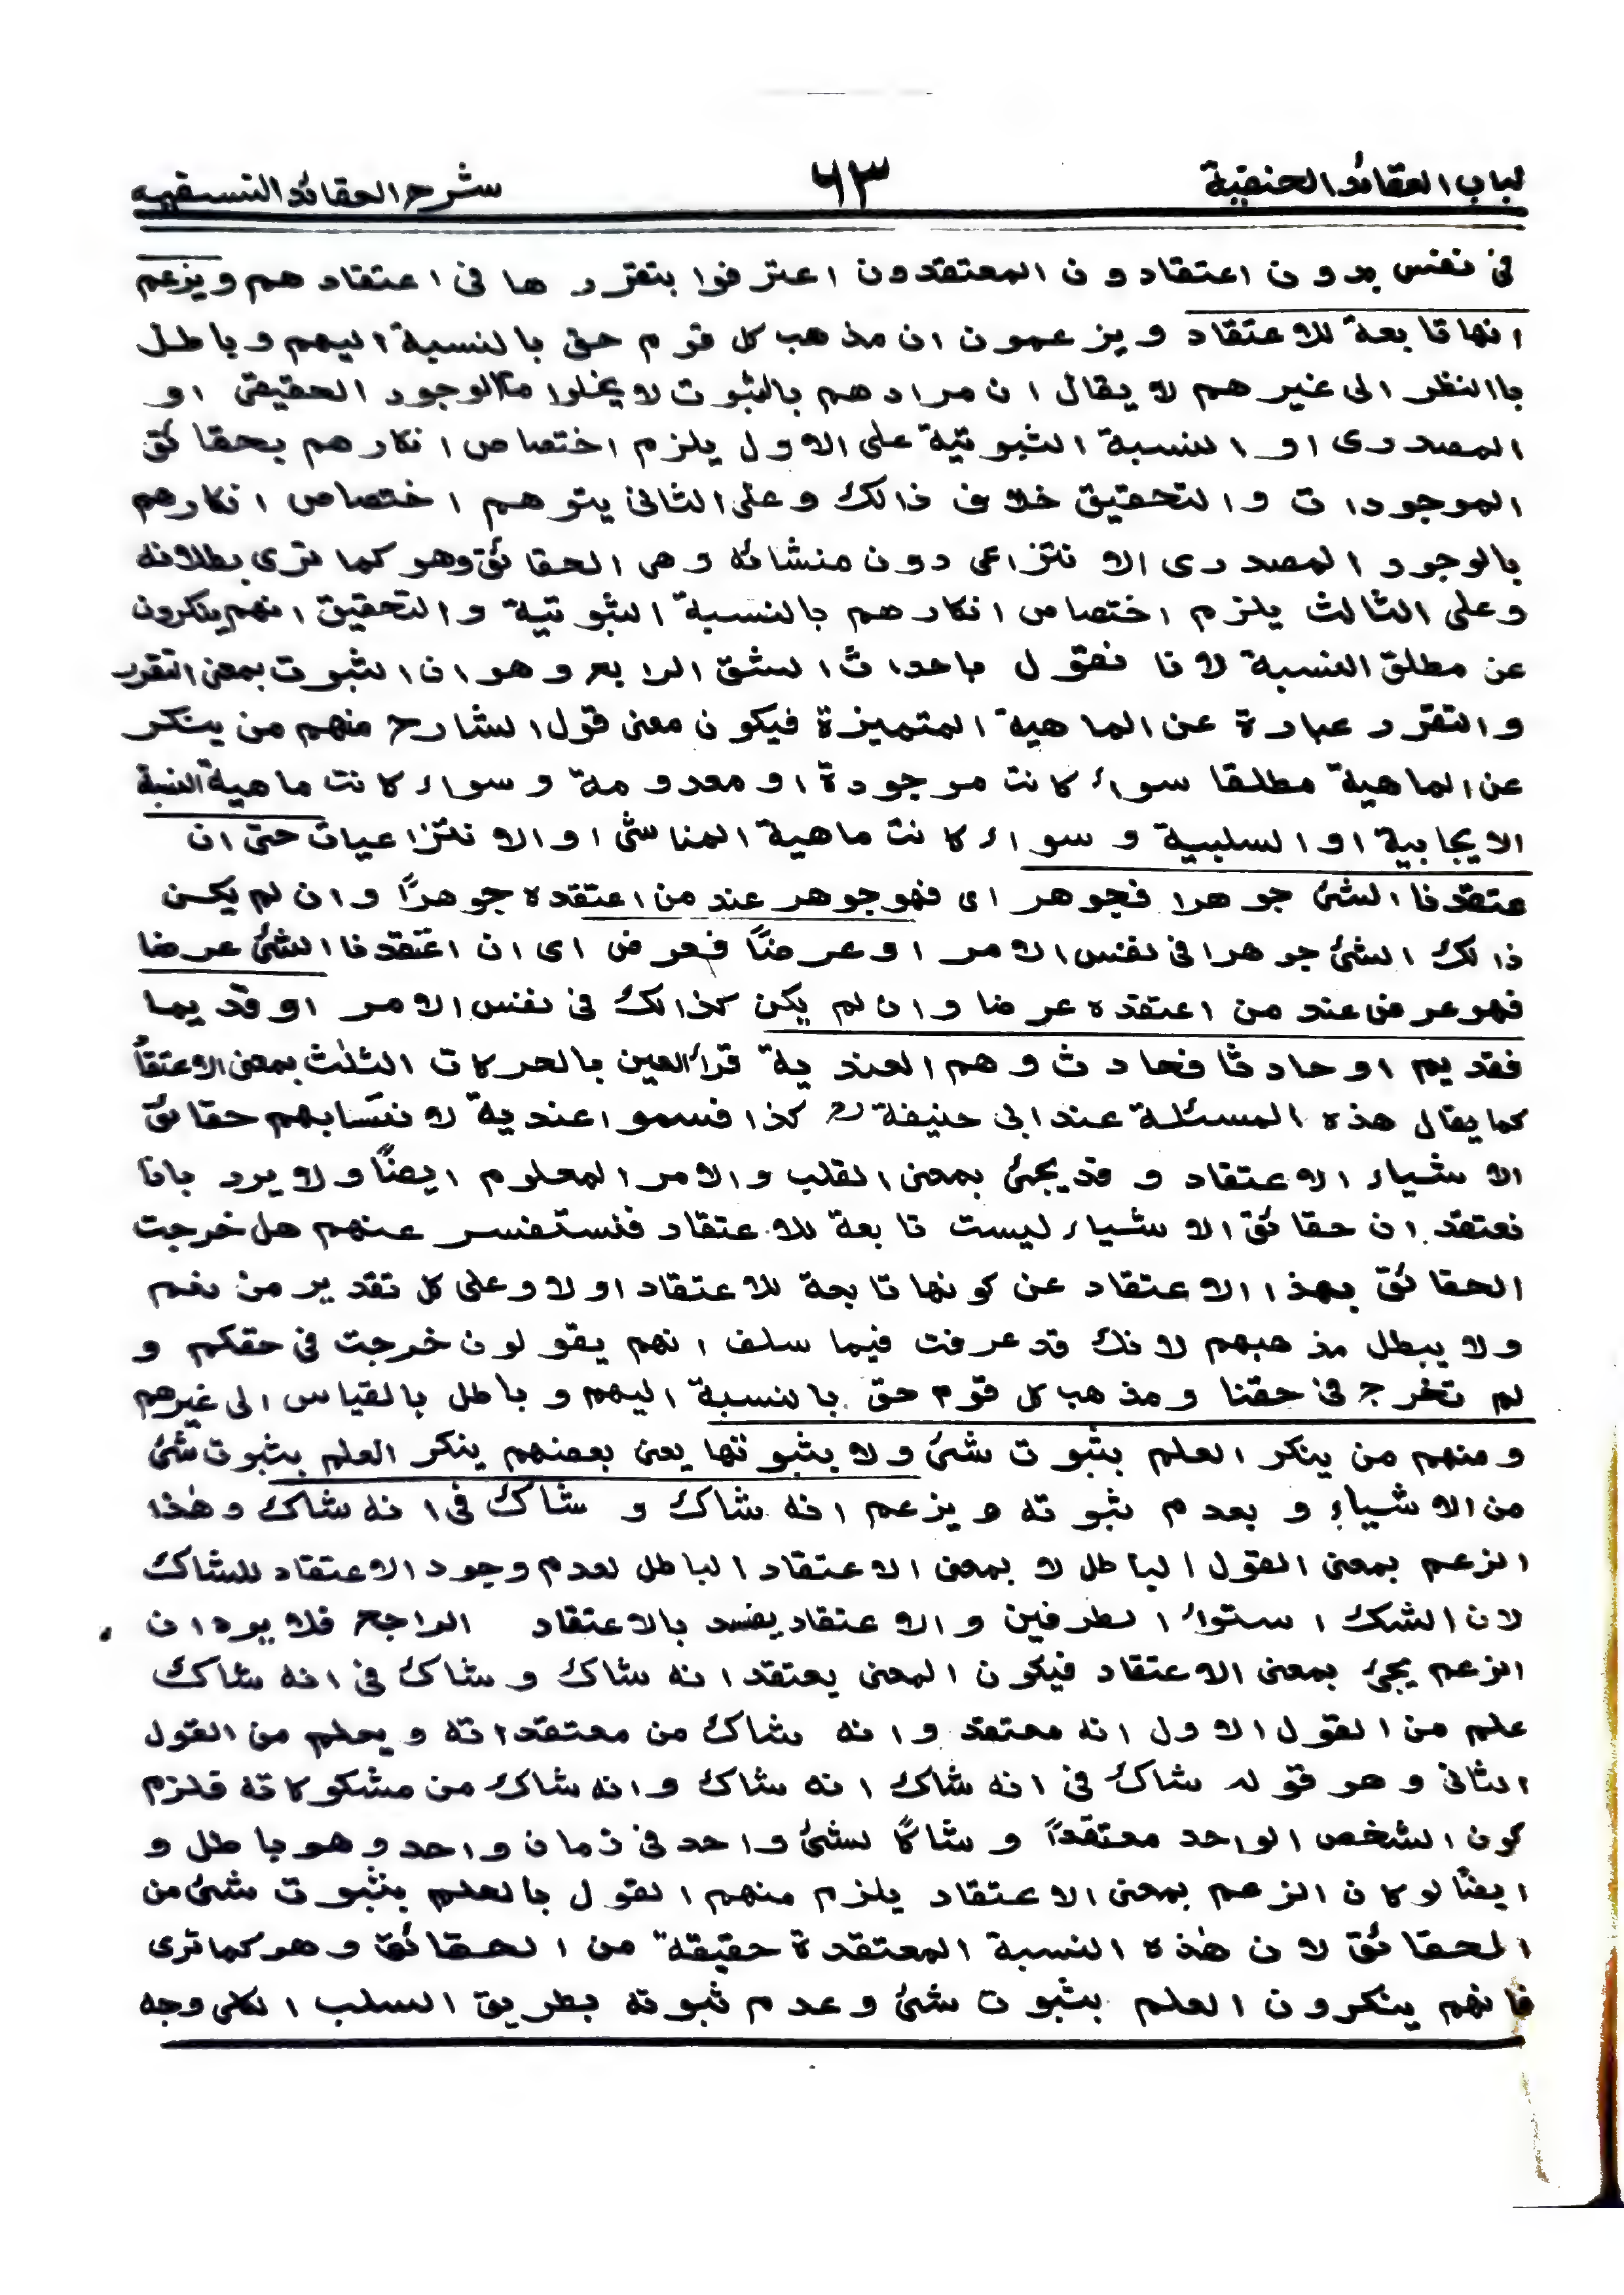 لباب العقائد الحنفية ٦٣ شرح العقائد النسفيه
فى نفس بدون اعتقاد ون المعتقدون اعترفوا بتقرر ها فى اعتقاد هم ويزعم
انها تابعة للاعتقاد ويزعمون ان مذهب كل قوم حق بالنسبة اليهم وباطل
باالنظر الى غيرهم لا يقال ان مرادهم بالثبوت لا يخلوا الوجود الحقيقى او
المصدرى او النسبة الثبوتية على الاول يلزم اختصاص انكارهم بحقائق
الموجودات والتحقيق خلاف ذالك وعلى الثانى يتوهم اختصاص انكارهم
بالوجود المصدرى الانتزاعى دون منشائه وهى الحقائق وهو كما ترى بطلانه
وعلى الثالث يلزم اختصاص انكارهم بالنسبة الثبوتية والتحقيق انهم ينكرون
عن مطلق النسبة لانا نقول باحداث الشق الرابع وهو ان الثبوت بمعنى التقرر
والتقرر عبارة عن الماهية المتميزة فيكون معنى قول الشارح منهم من ينكر
عن الماهية مطلقا سواء كانت موجودة او معدومة وسواء كانت ماهية النسبة
الايجابية او السلبية وسواء كانت ماهية المناشى او الانتزاعيات حتى ان
عتقدنا الشئ جوهرا فجوهر اى فهو جوهر عند من اعتقده جوهرًا وان لم يكن
ذالك الشئ جوهرا فى نفس الامر او عرضًا فعرض اى ان اعتقدنا الشئ عرضا
فهو عرض عند من اعتقده عرضا وان لم يكن كذالك فى نفس الامر او قديما
فقديم او حادثا فحادث وهم العندية قرأ العين بالحركات الثلث بمعنى الاعتقاد
كما يقال هذه المسئلة عند ابى حنيفة كذا فسموا عندية لانتسابهم حقائق
الاشياء الاعتقاد وقد يجئ بمعنى القلب والامر المعلوم ايضًا ولا يرد بانا
نعتقد ان حقائق الاشياء ليست تابعة للاعتقاد فنستفسر عنهم هل خرجت
الحقائق بهذا الاعتقاد عن كونها تابعة للاعتقاد اولا وعلى كل تقدير من نعم
ولا يبطل مذهبهم لانك قد عرفت فيما سلف انهم يقولون خرجت فى حقكم و
لم تخرج فى حقنا ومذهب كل قوم حق بالنسبة اليهم وباطل بالقياس الى غيرهم
ومنهم من ينكر العلم بثبوت شئ ولا بثبوتها يعنى بعضهم ينكر العلم بثبوت شئ
من الاشياء وبعدم ثبوته ويزعم انه شاك و شاك فى انه شاك وهذا
الزعم بمعنى القول الباطل لا بمعنى الاعتقاد الباطل لعدم وجود الاعتقاد للشاك
لان الشك استواء الطرفين والاعتقاد يفسد بالاعتقاد الراجح فلا يرد ان
الزعم يجئ بمعنى الاعتقاد فيكون المعنى يعتقد انه شاك وشاك فى انه شاك
علم من القول الاول انه معتقد وانه شاك من معتقداته ويعلم من القول
الثانى وهو قوله شاك فى انه شاك انه شاك وانه شاك من مشكوكاته فلزم
كون الشخص الواحد معتقدًا وشاكًا لشئ واحد فى زمان واحد وهو باطل و
ايضًا لو كان الزعم بمعنى الاعتقاد يلزم منهم القول بالعلم بثبوت شئ من
الحقائق لان هذه النسبة المعتقدة حقيقة من الحقائق وهو كما ترى
فانهم ينكرون العلم بثبوت شئ وعدم ثبوته بطريق السلب الكلى وجه